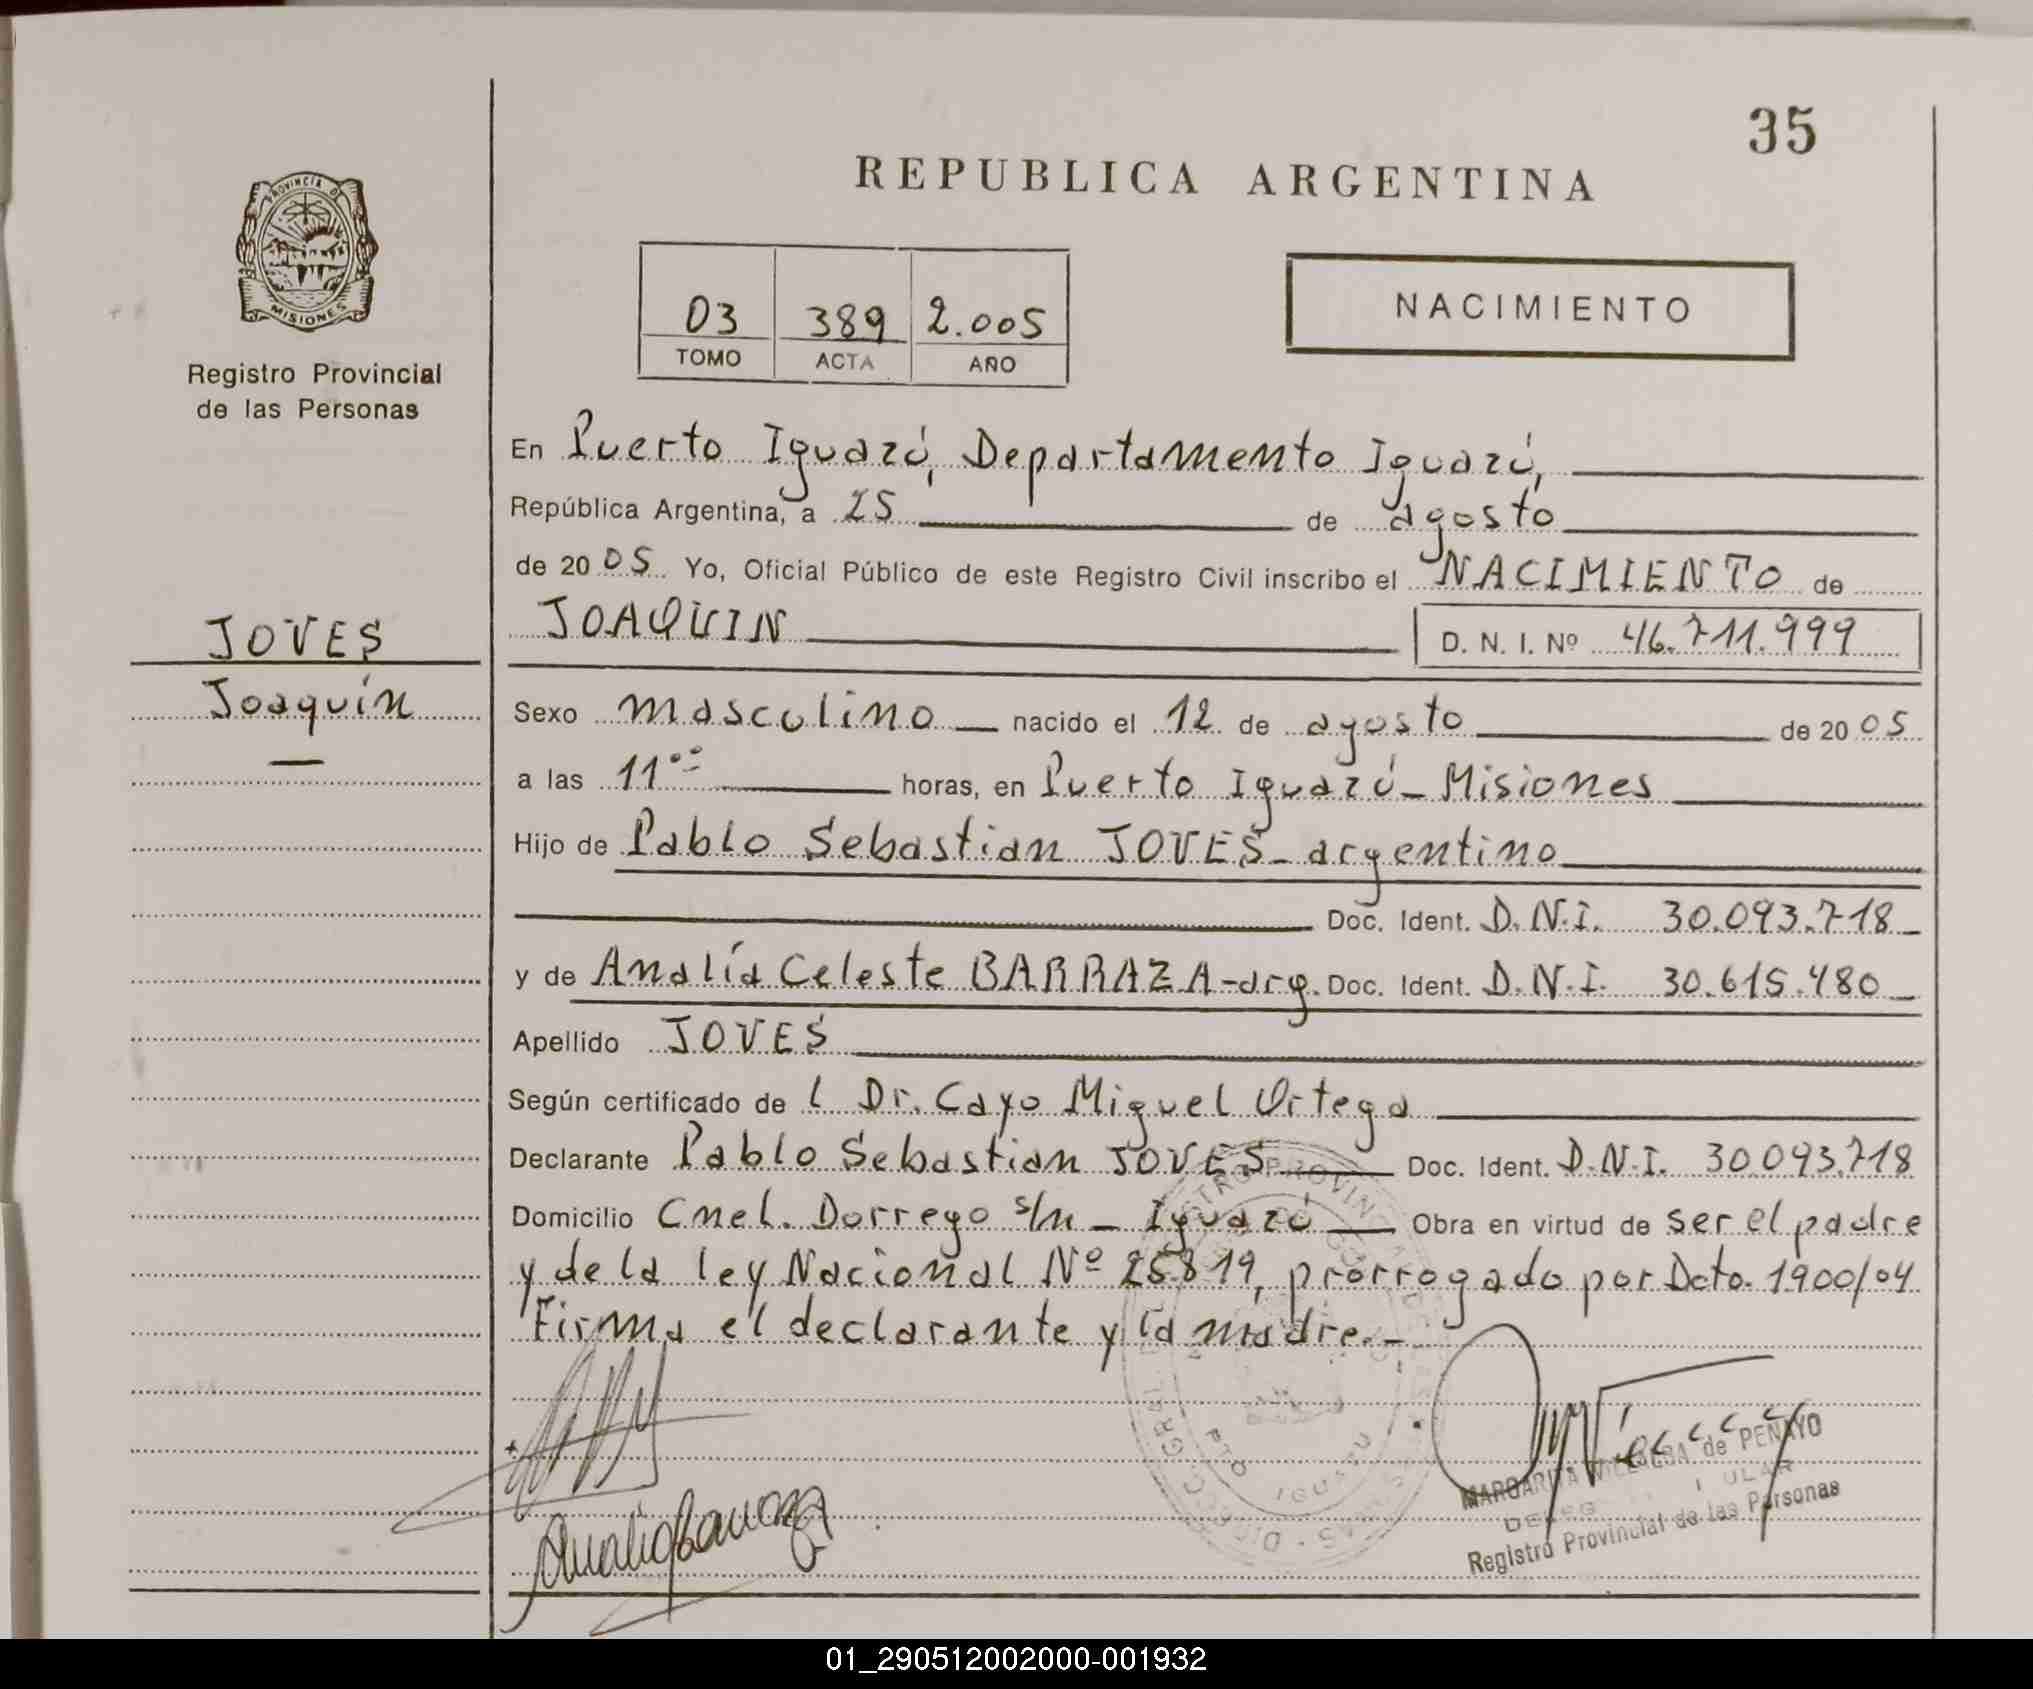 35
REPUBLICA ARGENTINA
PROVINCIA DE
MISIONES
Registro Provincial
de las Personas
03 389 2.005
TOMO ACTA AÑO
NACIMIENTO
En Puerto Iguazú, Departamento Iguazú,
República Argentina, a 25 de agosto
de 20 05 Yo, Oficial Público de este Registro Civil inscribo el NACIMIENTO de
JOVES
Joaquín
JOAQUIN D. N. I. Nº 46.711.999
Sexo masculino nacido el 12 de agosto de 20 05
a las 11 horas, en Puerto Iguazú - Misiones
Hijo de Pablo Sebastian JOVES - argentino
Doc. Ident. D.N.I. 30.093.718
y de Analía Celeste BARRAZA - arg. Doc. Ident. D.N.I. 30.615.480
Apellido JOVES
Según certificado de l Dr. Cayo Miguel Ortega
Declarante Pablo Sebastian JOVES Doc. Ident. D.N.I. 30.093.718
Domicilio Cnel. Dorrego s/n - Iguazú Obra en virtud de ser el padre
y de la ley Nacional Nº 25.819, prorrogado por Dcto. 1900/04
Firma el declarante y la madre.-
PTO IGUAZU
MARGARITA VILLALBA de PENAYO
Registro Provincial de las Personas
01_290512002000-001932